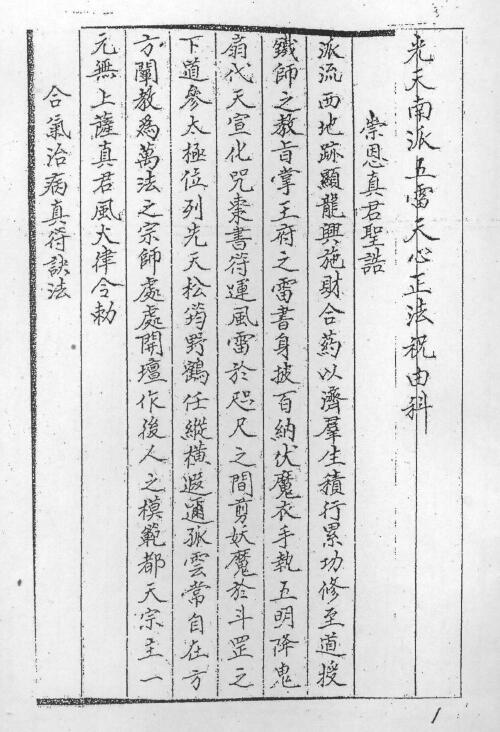 光天南派五雷天心正法祝由科
崇恩真君聖誥
派流西地跡顯龍興施財合葯以濟羣生積行累功修至道授
鐵師之教旨掌王府之雷書身披百納伏魔衣手執五明降鬼
扇代天宣化咒棗書符運風雷於咫尺之間剪妖魔於斗罡之
下道參太極位列先天松筠野鶴任縱橫遐邇孤雲常自在方
方闡教為萬法之宗師處處開壇作後人之模範都天宗主一
元無上薩真君風火律令勅
合氣治病真符訣法
1